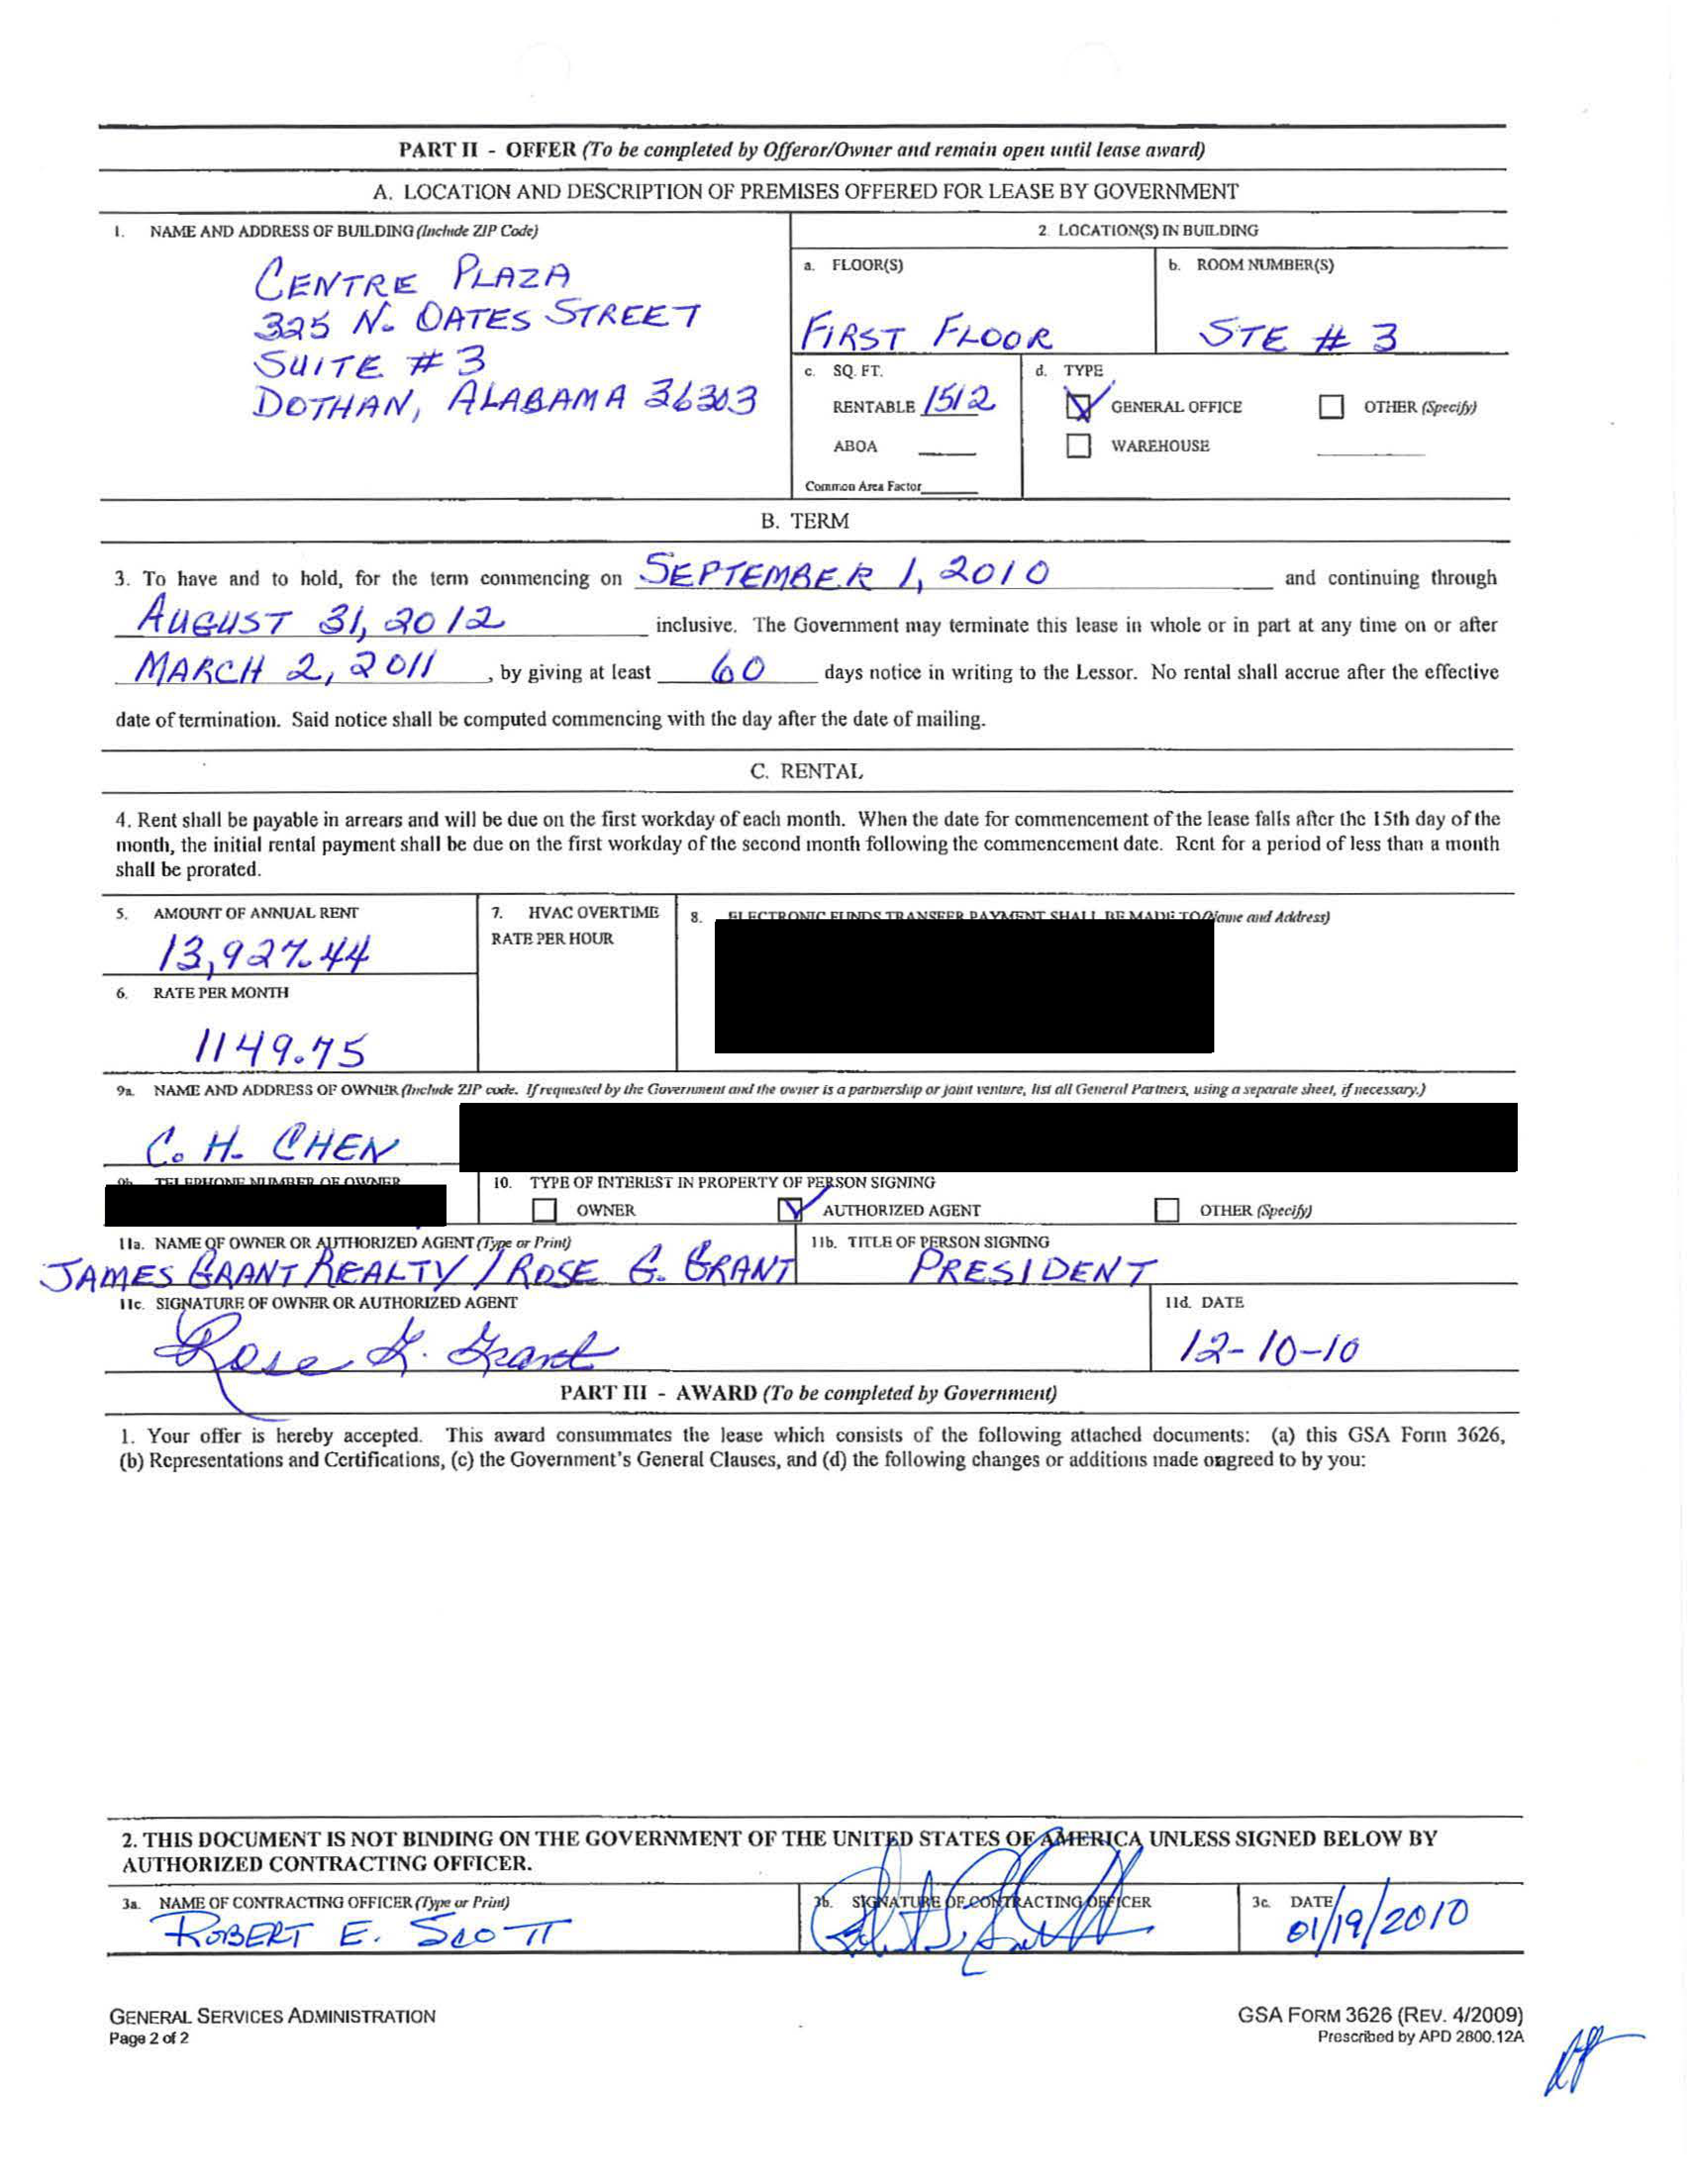 PART II - OFFER (To be completed by Offeror/Owner and remain open until lease award)
A. LOCATION AND DESCRIPTION OF PREMISES OFFERED FOR LEASE BY GOVERNMENT
1. NAME AND ADDRESS OF BUILDING (Include ZIP Code)
CENTRE PLAZA
325 N. OATES STREET
SUITE # 3
DOTHAN, ALABAMA 36303
2. LOCATION(S) IN BUILDING
a. FLOOR(S)
FIRST FLOOR
b. ROOM NUMBER(S)
STE # 3
c. SQ. FT.
RENTABLE 1512
ABOA
Common Area Factor
d. TYPE
GENERAL OFFICE
OTHER (Specify)
WAREHOUSE
B. TERM
3. To have and to hold, for the term commencing on SEPTEMBER 1, 2010 and continuing through
AUGUST 31, 2012 inclusive. The Government may terminate this lease in whole or in part at any time on or after
MARCH 2, 2011, by giving at least 60 days notice in writing to the Lessor. No rental shall accrue after the effective
date of termination. Said notice shall be computed commencing with the day after the date of mailing.
C. RENTAL
4. Rent shall be payable in arrears and will be due on the first workday of each month. When the date for commencement of the lease falls after the 15th day of the
month, the initial rental payment shall be due on the first workday of the second month following the commencement date. Rent for a period of less than a month
shall be prorated.
5. AMOUNT OF ANNUAL RENT
13,927.44
6. RATE PER MONTH
1149.75
7. HVAC OVERTIME
RATE PER HOUR
8. ELECTRONIC FUNDS TRANSFER PAYMENT SHALL BE MADE TO (Name and Address)
9a. NAME AND ADDRESS OF OWNER (Include ZIP code. If requested by the Government and the owner is a partnership or joint venture, list all General Partners, using a separate sheet, if necessary.)
C. H. CHEN
9b. TELEPHONE NUMBER OF OWNER
10. TYPE OF INTEREST IN PROPERTY OF PERSON SIGNING
OWNER
AUTHORIZED AGENT
OTHER (Specify)
11a. NAME OF OWNER OR AUTHORIZED AGENT (Type or Print)
JAMES GRANT REALTY / ROSE G. GRANT
11b. TITLE OF PERSON SIGNING
PRESIDENT
11c. SIGNATURE OF OWNER OR AUTHORIZED AGENT
Rose G. Grant
11d. DATE
12-10-10
PART III - AWARD (To be completed by Government)
1. Your offer is hereby accepted. This award consummates the lease which consists of the following attached documents: (a) this GSA Form 3626,
(b) Representations and Certifications, (c) the Government's General Clauses, and (d) the following changes or additions made or agreed to by you:
2. THIS DOCUMENT IS NOT BINDING ON THE GOVERNMENT OF THE UNITED STATES OF AMERICA UNLESS SIGNED BELOW BY
AUTHORIZED CONTRACTING OFFICER.
3a. NAME OF CONTRACTING OFFICER (Type or Print)
ROBERT E. SCOTT
3b. SIGNATURE OF CONTRACTING OFFICER
3c. DATE
01/19/2010
GENERAL SERVICES ADMINISTRATION
Page 2 of 2
GSA FORM 3626 (REV. 4/2009)
Prescribed by APD 2800.12A